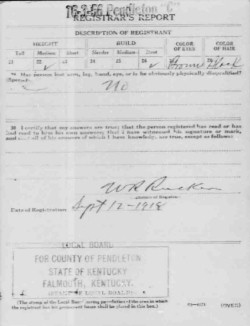 Pendleton "C"
REGISTRAR'S REPORT
DESCRIPTION OF REGISTRANT
HEIGHT BUILD COLOR OF EYES COLOR OF HAIR
Tall Medium Short Slender Medium Stout
21 22 23 24 25 26 27 28
29 Has person lost arm, leg, hand, eye, or is he obviously physically disqualified?
(Specify.)
No
30 I certify that my answers are true; that the person registered has read or has
had read to him his own answers; that I have witnessed his signature or mark,
and that all of his answers of which I have knowledge are true, except as follows:
Date of Registration Sept 12-1918
LOCAL BOARD
FOR COUNTY OF PENDLETON
STATE OF KENTUCKY
FALMOUTH, KENTUCKY.
(The stamp of the Local Board having jurisdiction of the area in which
the registrant has his permanent home shall be placed in this box.)